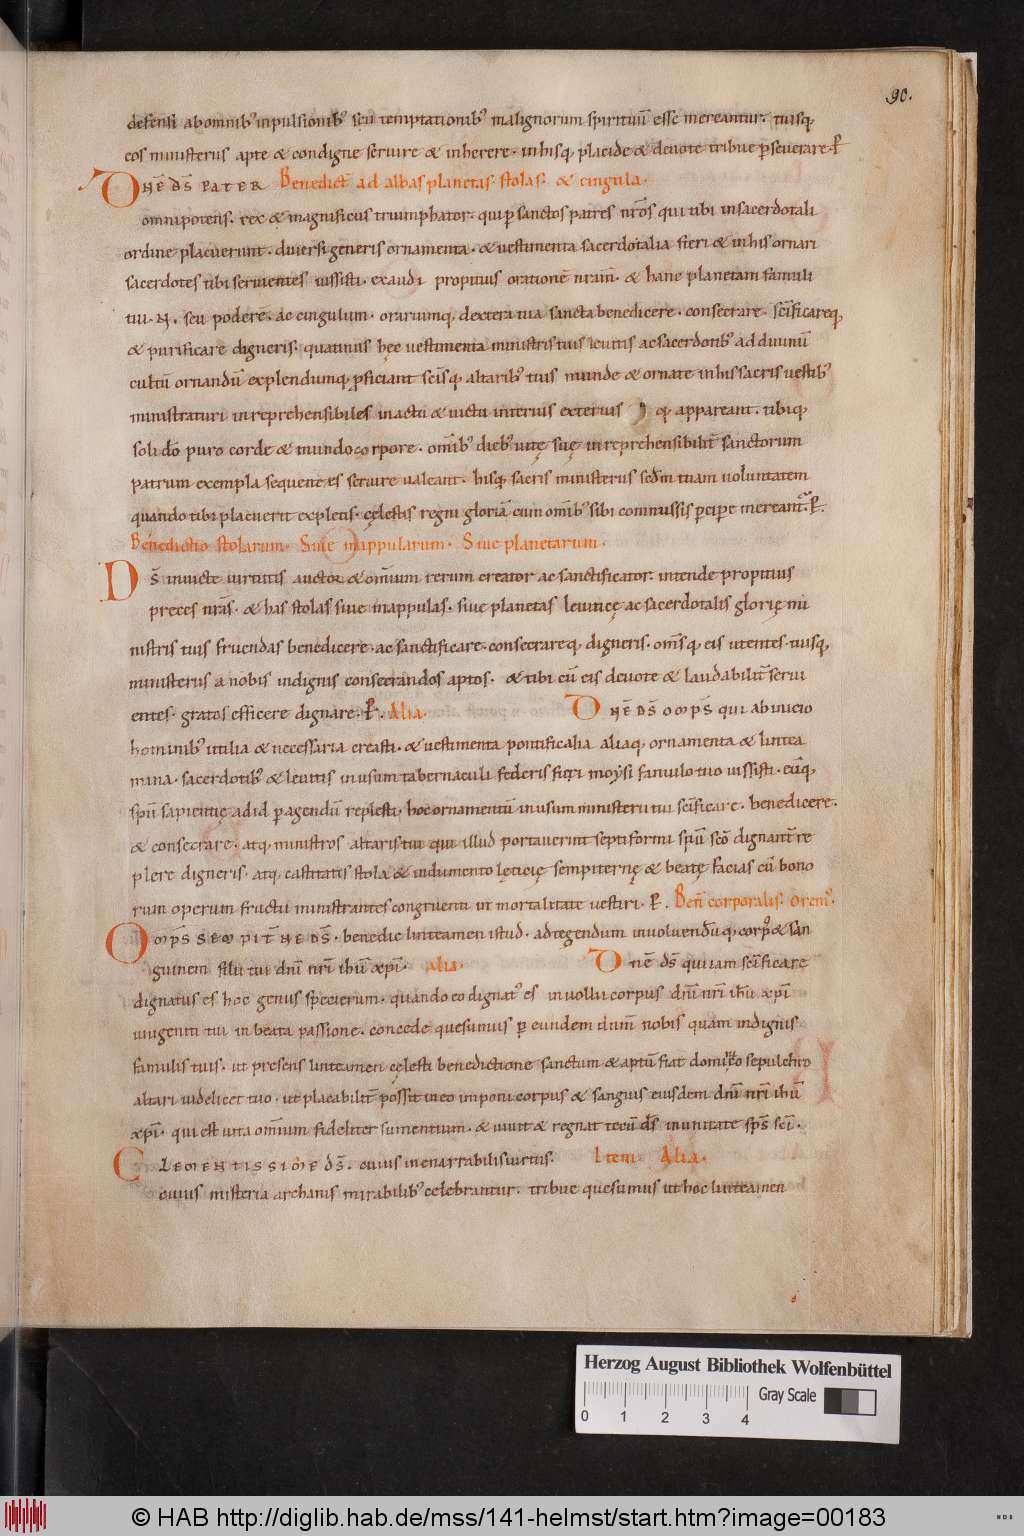 90.
defensi ab omnibꝰ inpulsionibꝰ seu temptationibꝰ malignorum spirituū esse mereantur. tuisq;
eos ministeriis apte & condigne seruire & inherere. in his q; placide & deuote tribue ꝑseuerare. P
DNĒ DS̄ PATER Benedict̄ ad albas planetas. stolas. & cingula.
omnipotens. rex & magnificus triumphator. qui ꝑ sanctos patres nr̄os qui tibi in sacerdotali
ordine placuerunt. diuersi generis ornamenta. & uestimenta sacerdotalia fieri & in his ornari
sacerdotes tibi seruientes iussisti. exaudi propitius orationē nr̄am. & hanc planetam famuli
tui. N. seu poderē. ac cingulum. orariumq; dextera tua sancta benedicere. consecrare. sc̄ificareq;
& purificare digneris. quatinus hęc uestimenta ministris tuis leuitis ac sacerdotibꝰ ad diuinū
cultū ornandū explendumq; ꝓficiant sc̄isq; altaribꝰ tuis munde & ornate in his sacris uestibꝰ
ministraturi inreprehensibiles in actu & uictu interius exterius q; appareant. tibiq;
soli dō puro corde & mundo corpore. om̄ibꝰ diebꝰ uitę suę inreprehensibilit̄ sanctorum
patrum exempla sequentes seruire ualeant. hisq; sacris ministeriis scd̄m tuam uoluntatem
quando tibi placuerit expletis. cęlestis regni gloriā cum om̄ibꝰ sibi commissis ꝑcipe mereant̄. P.
Benedictio stolarum. Siue mappularum. Siue planetarum.
DS̄ inuicte uirtutis auctor & om̄ium rerum creator ac sanctificator. intende propitius
preces nr̄as. & has stolas siue mappulas. siue planetas leuiticę ac sacerdotalis glorię mi
nistris tuis fruendas benedicere. ac sanctificare. consecrareq; digneris. om̄sq; eis utentes. tuisq;
ministeriis a nobis indignis consecrandos aptos. & tibi cū eis deuote & laudabilit̄ serui
entes. gratos efficere dignare. P. Alia. DNĒ DS̄ OMP̄S qui ab inicio
hominibꝰ utilia & necessaria creasti. & uestimenta pontificalia aliaq; ornamenta & lintea
mina. sacerdotibꝰ & leuitis in usum tabernaculi federis fieri moysi famulo tuo iussisti. eūq;
spū sapientię ad id ꝑagendū replesti. hoc ornamentū in usum ministerii tui sc̄ificare. benedicere.
& consecrare. atq; ministros altaris tui qui illud portauerint septiformi spū scō dignant̄ re
plere digneris. atq; castitatis stola & indumento lęticię sempiternę & beatę facias cū bono
rum operum fructu ministrantes congruenti in mortalitate uestiri. P. Ben̄ corporalis. Oremꝰ.
OMP̄S SEMPIT̄NE DS̄. benedic linteamen istud. ad tegendum inuoluendūq; corpꝰ & san
guinem filii tui dn̄i nr̄i ihū xp̄i. alia. DNĒ DS̄ qui iam sc̄ificare
dignatus es hoc genus specierum. quando eo dignatꝰ es inuolui corpus dn̄i nr̄i ihū xp̄i
unigeniti tui in beata passione. concede quesumus ꝑ eundem dūm nobis quam indignis
famulis tuis. ut presens linteamen cęlesti benedictione sanctum & aptū fiat dominico sepulchro
altari uidelicet tuo. ut placabilit̄ possit in eo imponi corpus & sanguis eiusdem dn̄i nr̄i ihū
xp̄i. qui est uita om̄ium fideliter sumentium. & uiuit & regnat tecū ds̄ in unitate sp̄s sc̄i.
CLEMENTISSIME DS̄. cuius inenarrabilis uirtus. Item Alia.
cuius misteria archanis mirabilibꝰ celebrantur. tribue quesumus ut hoc linteamen
Herzog August Bibliothek Wolfenbüttel
Gray Scale
0 1 2 3 4
© HAB http://diglib.hab.de/mss/141-helmst/start.htm?image=00183